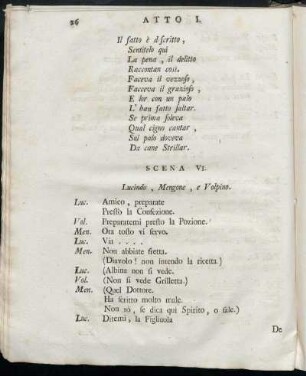 26 ATTO I.
Il fatto è descritto,
Sentitelo qui
La pena, il delitto
Raccontan così.
Faceva il vezzoso,
Faceva il grazioso,
E lor con un palo
L' han fatto saltar.
Se prima soleva
Qual cigno cantar,
Sul palo doveva
Da cane Strillar.
SCENA VI.
Lucindo, Mengone, e Volpino.
Luc. Amico, preparate
Presto la Confezione.
Vol. Preparatemi presto la Pozione.
Men. Ora tosto vi servo.
Luc. Via . . . .
Men. Non abbiate fretta.
(Diavolo! non intendo la ricetta)
Luc. (Albina non si vede.
Vol. (Non si vede Grilletta.)
Men. (Quel Dottore.
Ha scritto molto male.
Non sò, se dica quì Spirito, o sale.)
Luc. Ditemi, la Figliuola
De